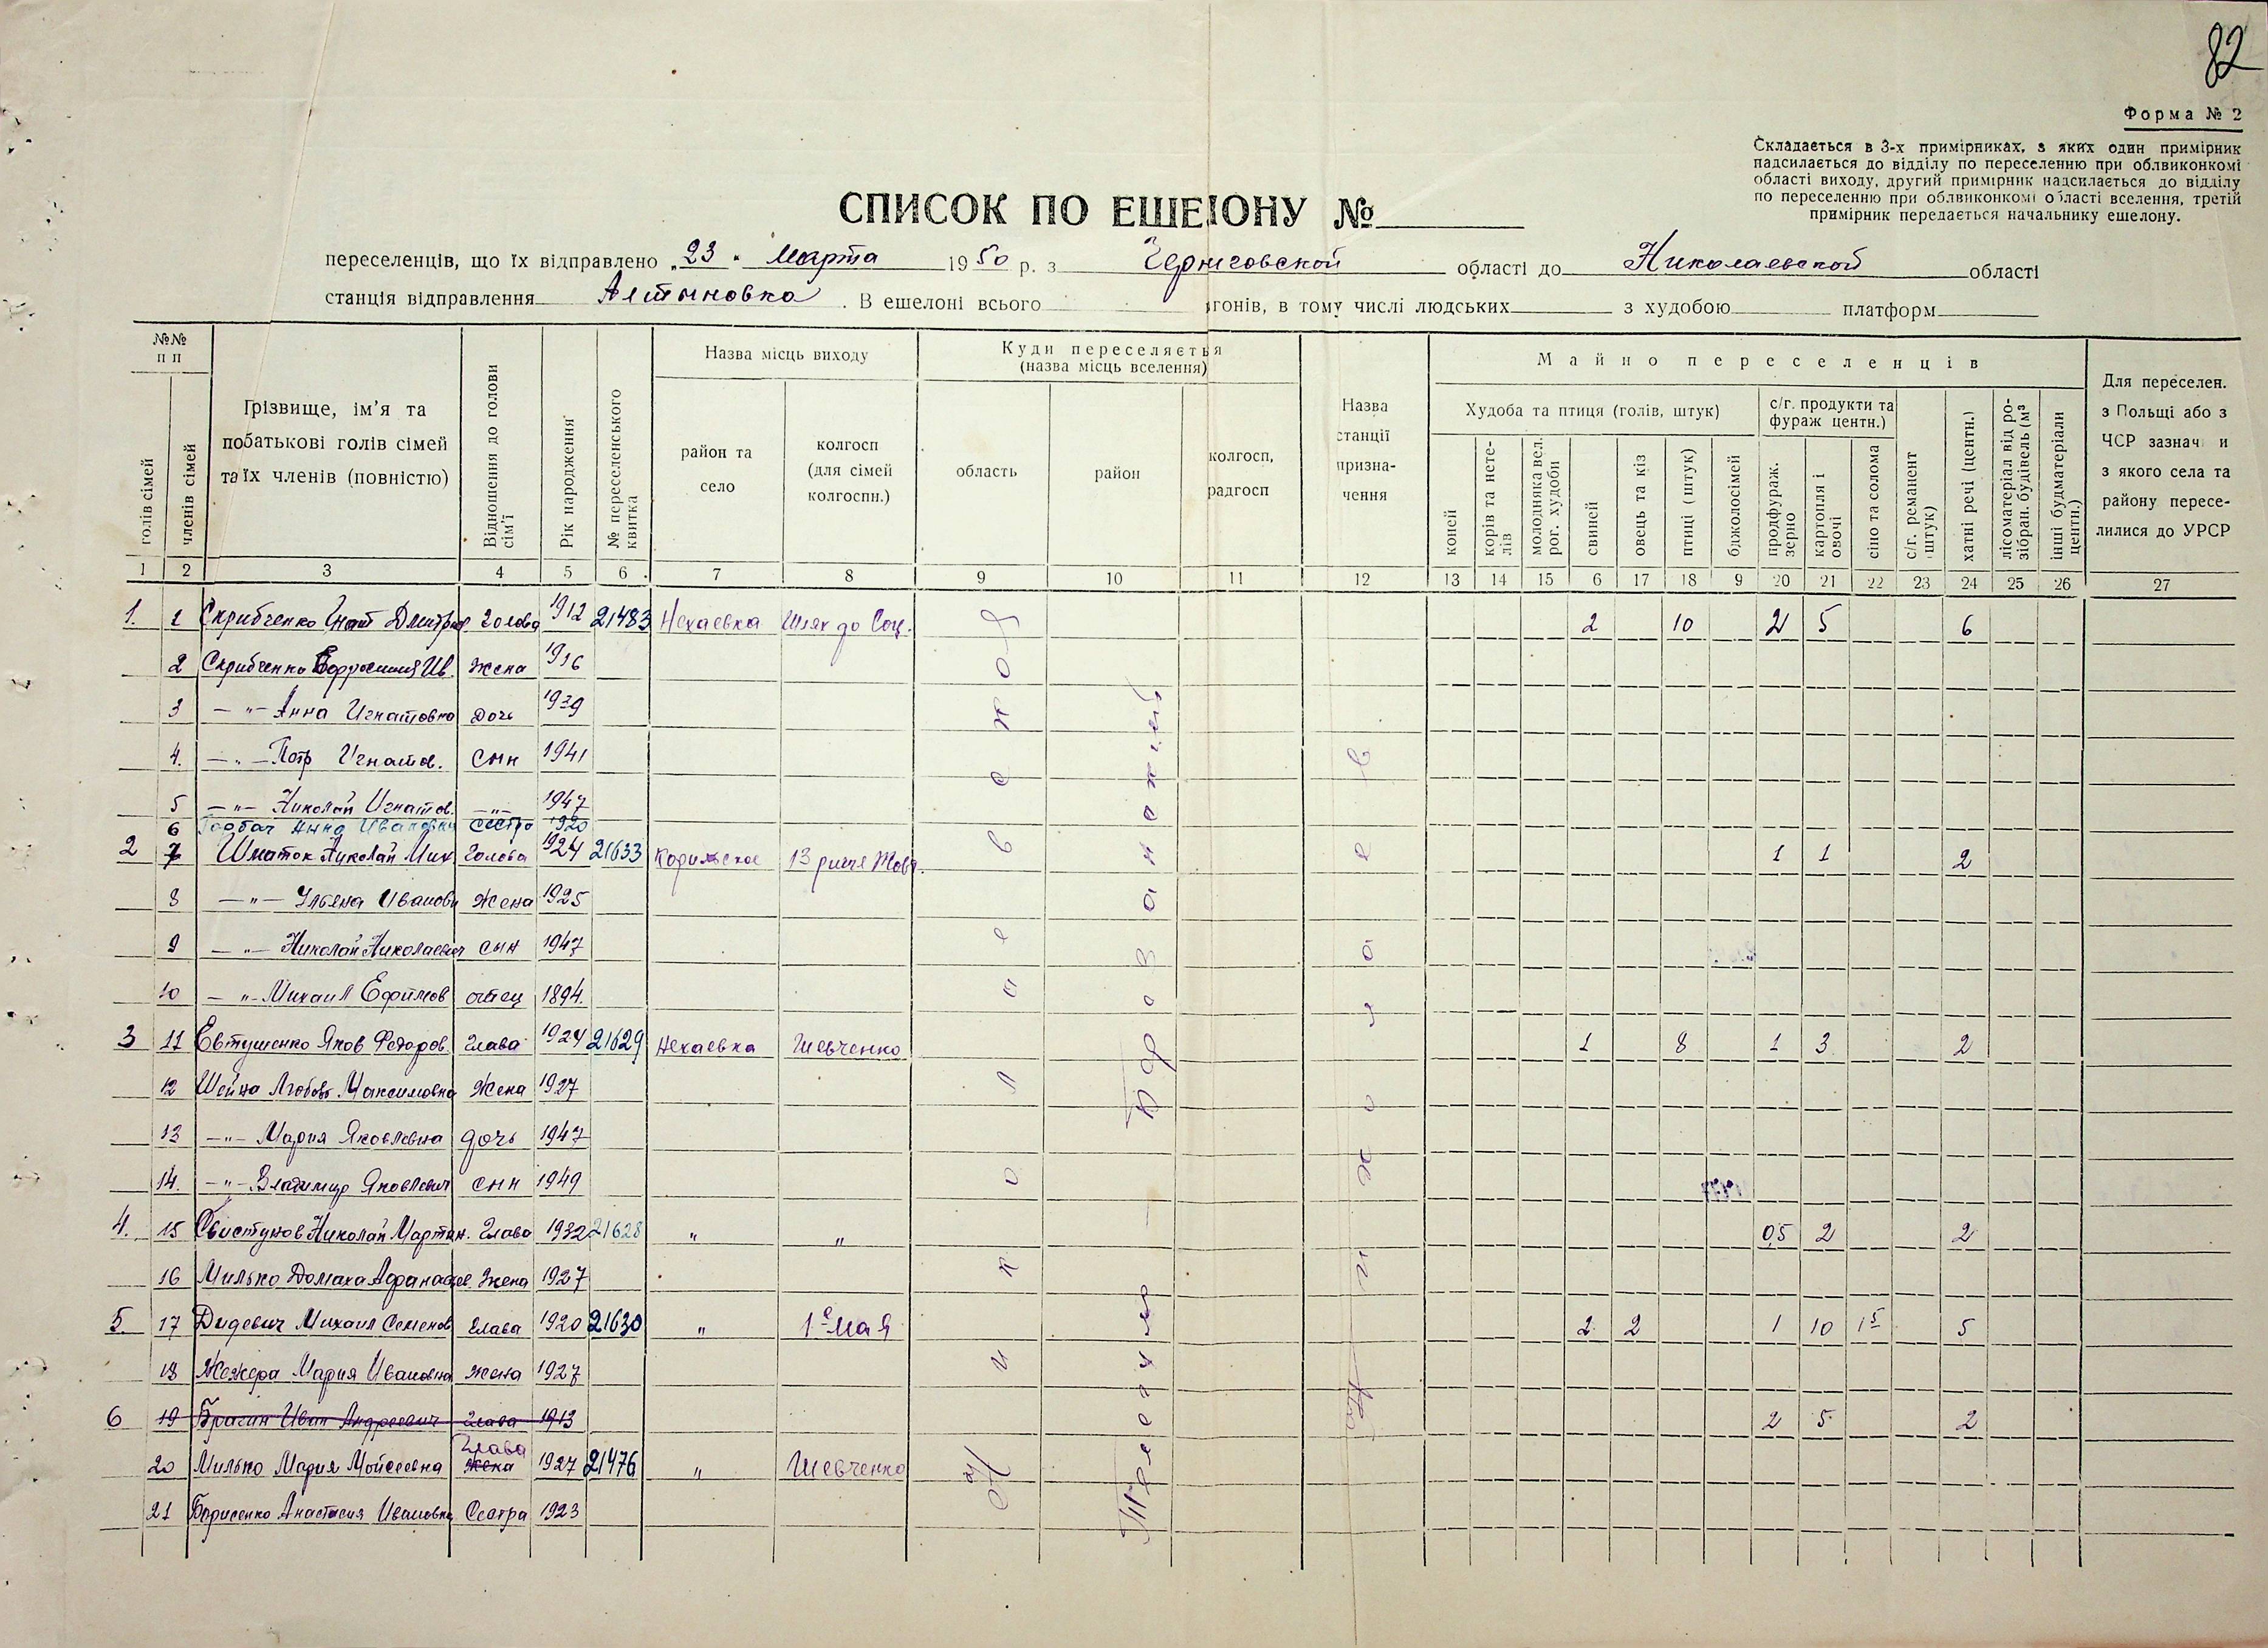 82
Форма № 2
Складається в 3-х примірниках, з яких один примірник
надсилається до відділу по переселенню при облвиконкомі
області виходу, другий примірник надсилається до відділу
по переселенню при облвиконкомі області вселення, третій
примірник передається начальнику ешелону.
СПИСОК ПО ЕШЕЛОНУ №
переселенців, що їх відправлено „23" Марта 1950 р. з Черниговской області до Николаевской області
станція відправлення Алтыновка. В ешелоні всього вагонів, в тому числі людських з худобою платформ
№№ п п
голів сімей
членів сімей
Прізвище, ім'я та побатькові голів сімей та їх членів (повністю)
Відношення до голови сім'ї
Рік народження
№ переселенського квитка
Назва місць виходу
район та село
колгосп (для сімей колгоспн.)
Куди переселяється (назва місць вселення)
область
район
колгосп, радгосп
Назва станції призна-чення
Майно переселенців
Худоба та птиця (голів, штук)
коней
корів та нете-лів
молодняка вел. рог. худоби
свиней
овець та кіз
птиці (штук)
бджолосімей
с/г. продукти та фураж центн.)
продфураж. зерно
картопля і овочі
сіно та солома
с/г. реманент штук)
хатні речі (центн.)
лісоматеріал від ро-зібран. будівель (м³
інші будматеріали центн.)
Для переселен. з Польщі або з ЧСР зазнач и з якого села та району пересе-лилися до УРСР
1 2 3 4 5 6 7 8 9 10 11 12 13 14 15 6 17 18 9 20 21 22 23 24 25 26 27
1. 1 Скрибченко Игнат Дмитров. голова 1912 21483 Нехаевка Шлях до Соц. 2 10 2 5 6
2 Скрибченко Ефросиния Ив. жена 1916
3 — " — Анна Игнатовна дочь 1939
4. — " — Петр Игнатов. сын 1941
5 — " — Николай Игнатов. — " — 1947
6 Горбач Анна Ивановна сестра 1920
2 7 Шматок Николай Мих голова 1924 21633 Корильское 13 річче Жовт. 1 1 2
8 — " — Ульяна Ивановн жена 1925
9 — " — Николай Николаевич сын 1947
10 — " — Михаил Ефимов отец 1894.
3 11 Евтушенко Яков Федоров. глава 1924 21629 Нехаевка Шевченко 1 8 1 3 2
12 Шейко Любовь Максимовна жена 1927
13 — " — Мария Яковлевна дочь 1947
14. — " — Владимир Яковлевич сын 1949
4. 15 Свистунов Николай Мартын. глава 1932 21628 " " 0,5 2 2
16 Милько Домаха Афанасье. жена 1927
5. 17 Дидевич Михаил Семенов глава 1920 21630 " 1е мая 2 2 1 10 1⁵ 5
18 Жежера Мария Ивановна жена 1927
6 19 Брагин Иван Андреевич глава 1913 2 5 2
20 Милько Мария Мойсеевна жена глава 1927 21476 " Шевченко
21 Борисенко Анастасия Ивановна сестра 1923
Николаевской
Тилигуло — Березанский
Николаев